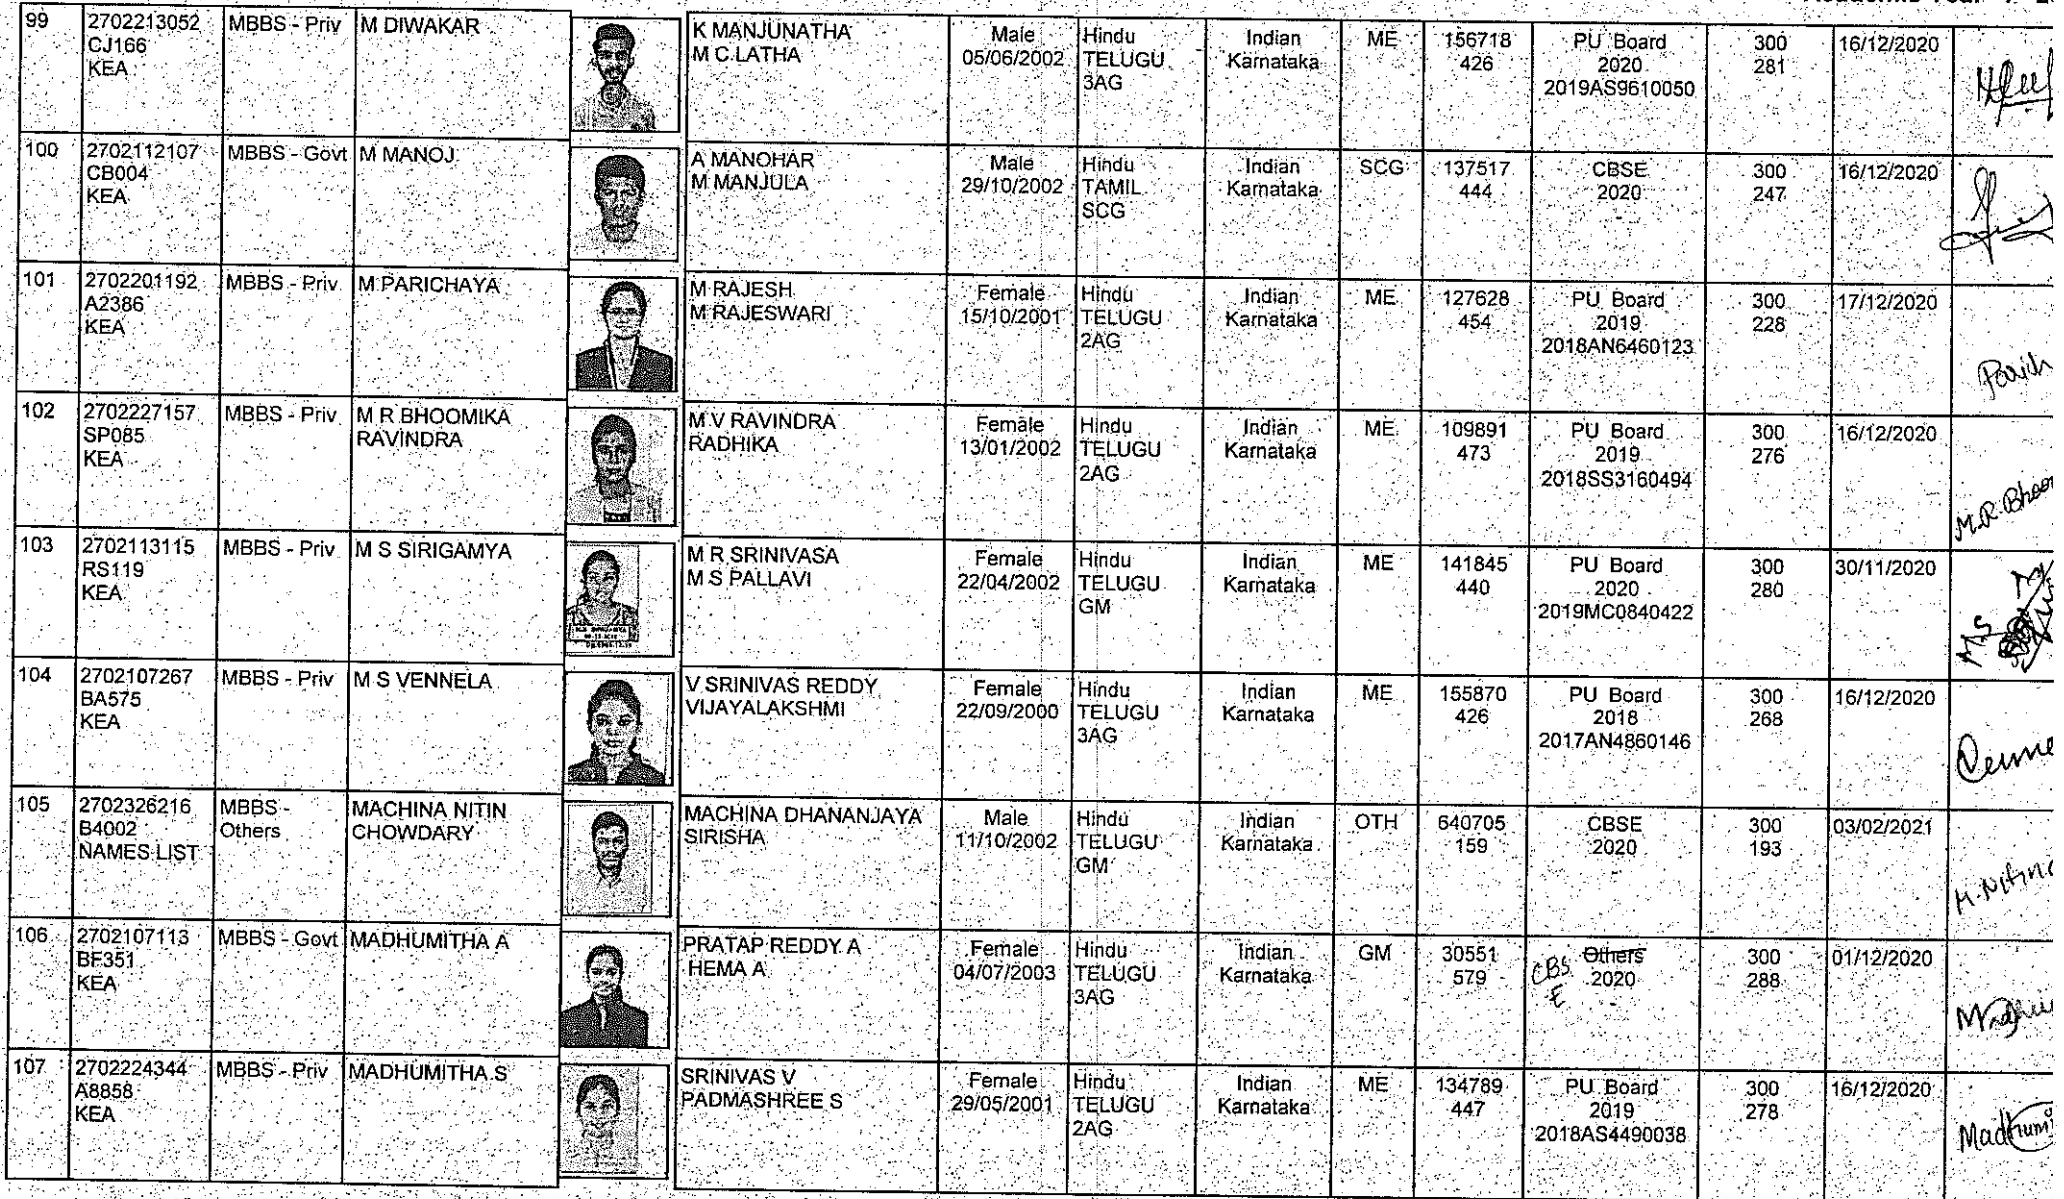 99
2702213052
CJ166
KEA
MBBS - Priv
M DIWAKAR
K MANJUNATHA
M C LATHA
Male
05/06/2002
Hindu
TELUGU
3AG
Indian
Karnataka
ME
156718
426
PU Board
2020
2019AS9610050
300
281
16/12/2020
100
2702112107
CB004
KEA
MBBS - Govt
M MANOJ
A MANOHAR
M MANJULA
Male
29/10/2002
Hindu
TAMIL
SCG
Indian
Karnataka
SCG
137517
444
CBSE
2020
300
247
16/12/2020
101
2702201192
A2386
KEA
MBBS - Priv
M PARICHAYA
M RAJESH
M RAJESWARI
Female
15/10/2001
Hindu
TELUGU
2AG
Indian
Karnataka
ME
127628
454
PU Board
2019
2018AN6460123
300
228
17/12/2020
102
2702227157
SP085
KEA
MBBS - Priv
M R BHOOMIKA
RAVINDRA
M V RAVINDRA
RADHIKA
Female
13/01/2002
Hindu
TELUGU
2AG
Indian
Karnataka
ME
109891
473
PU Board
2019
2018SS3160494
300
276
16/12/2020
M.R.Bhoom
103
2702113115
RS119
KEA
MBBS - Priv
M S SIRIGAMYA
M R SRINIVASA
M S PALLAVI
Female
22/04/2002
Hindu
TELUGU
GM
Indian
Karnataka
ME
141845
440
PU Board
2020
2019MC0840422
300
280
30/11/2020
M.S
104
2702107267
BA575
KEA
MBBS - Priv
M S VENNELA
V SRINIVAS REDDY
VIJAYALAKSHMI
Female
22/09/2000
Hindu
TELUGU
3AG
Indian
Karnataka
ME
155870
426
PU Board
2018
2017AN4860146
300
268
16/12/2020
105
2702326216
B4002
NAMES LIST
MBBS -
Others
MACHINA NITIN
CHOWDARY
MACHINA DHANANJAYA
SIRISHA
Male
11/10/2002
Hindu
TELUGU
GM
Indian
Karnataka
OTH
640705
159
CBSE
2020
300
193
03/02/2021
106
2702107113
BF351
KEA
MBBS - Govt
MADHUMITHA A
PRATAP REDDY A
HEMA A
Female
04/07/2003
Hindu
TELUGU
3AG
Indian
Karnataka
GM
30551
579
CBS
E
Others
2020
300
288
01/12/2020
107
2702224344
A8858
KEA
MBBS - Priv
MADHUMITHA S
SRINIVAS V
PADMASHREE S
Female
29/05/2001
Hindu
TELUGU
2AG
Indian
Karnataka
ME
134789
447
PU Board
2019
2018AS4490038
300
278
16/12/2020
Madhumi